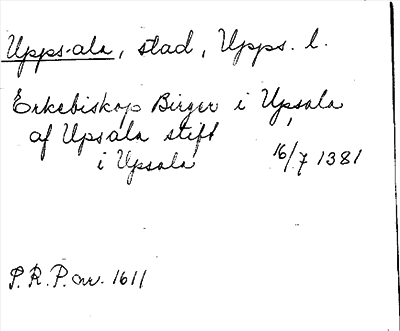 Upps-ala, stad, Upps. l.
Erkebiskop Birger i Upsala
af Upsala stift
i Upsala 16/7 1381
P. R. P. nr. 1611